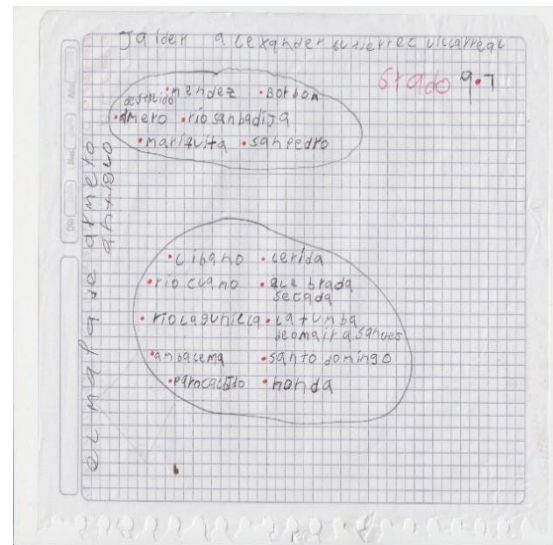 Jaider alexander gutierrec villarreal
Grado 9.7
•mendez •borbon
destruido
•Armero •rio sanbadija
•mariquita •sanpedro
el mapa de armero
antiguo
•libano •lerida
•rio cuano •quebrada
secada
•rio lagunilla •la tumba
deomaira sanches
•ambalema •santo domingo
•honda